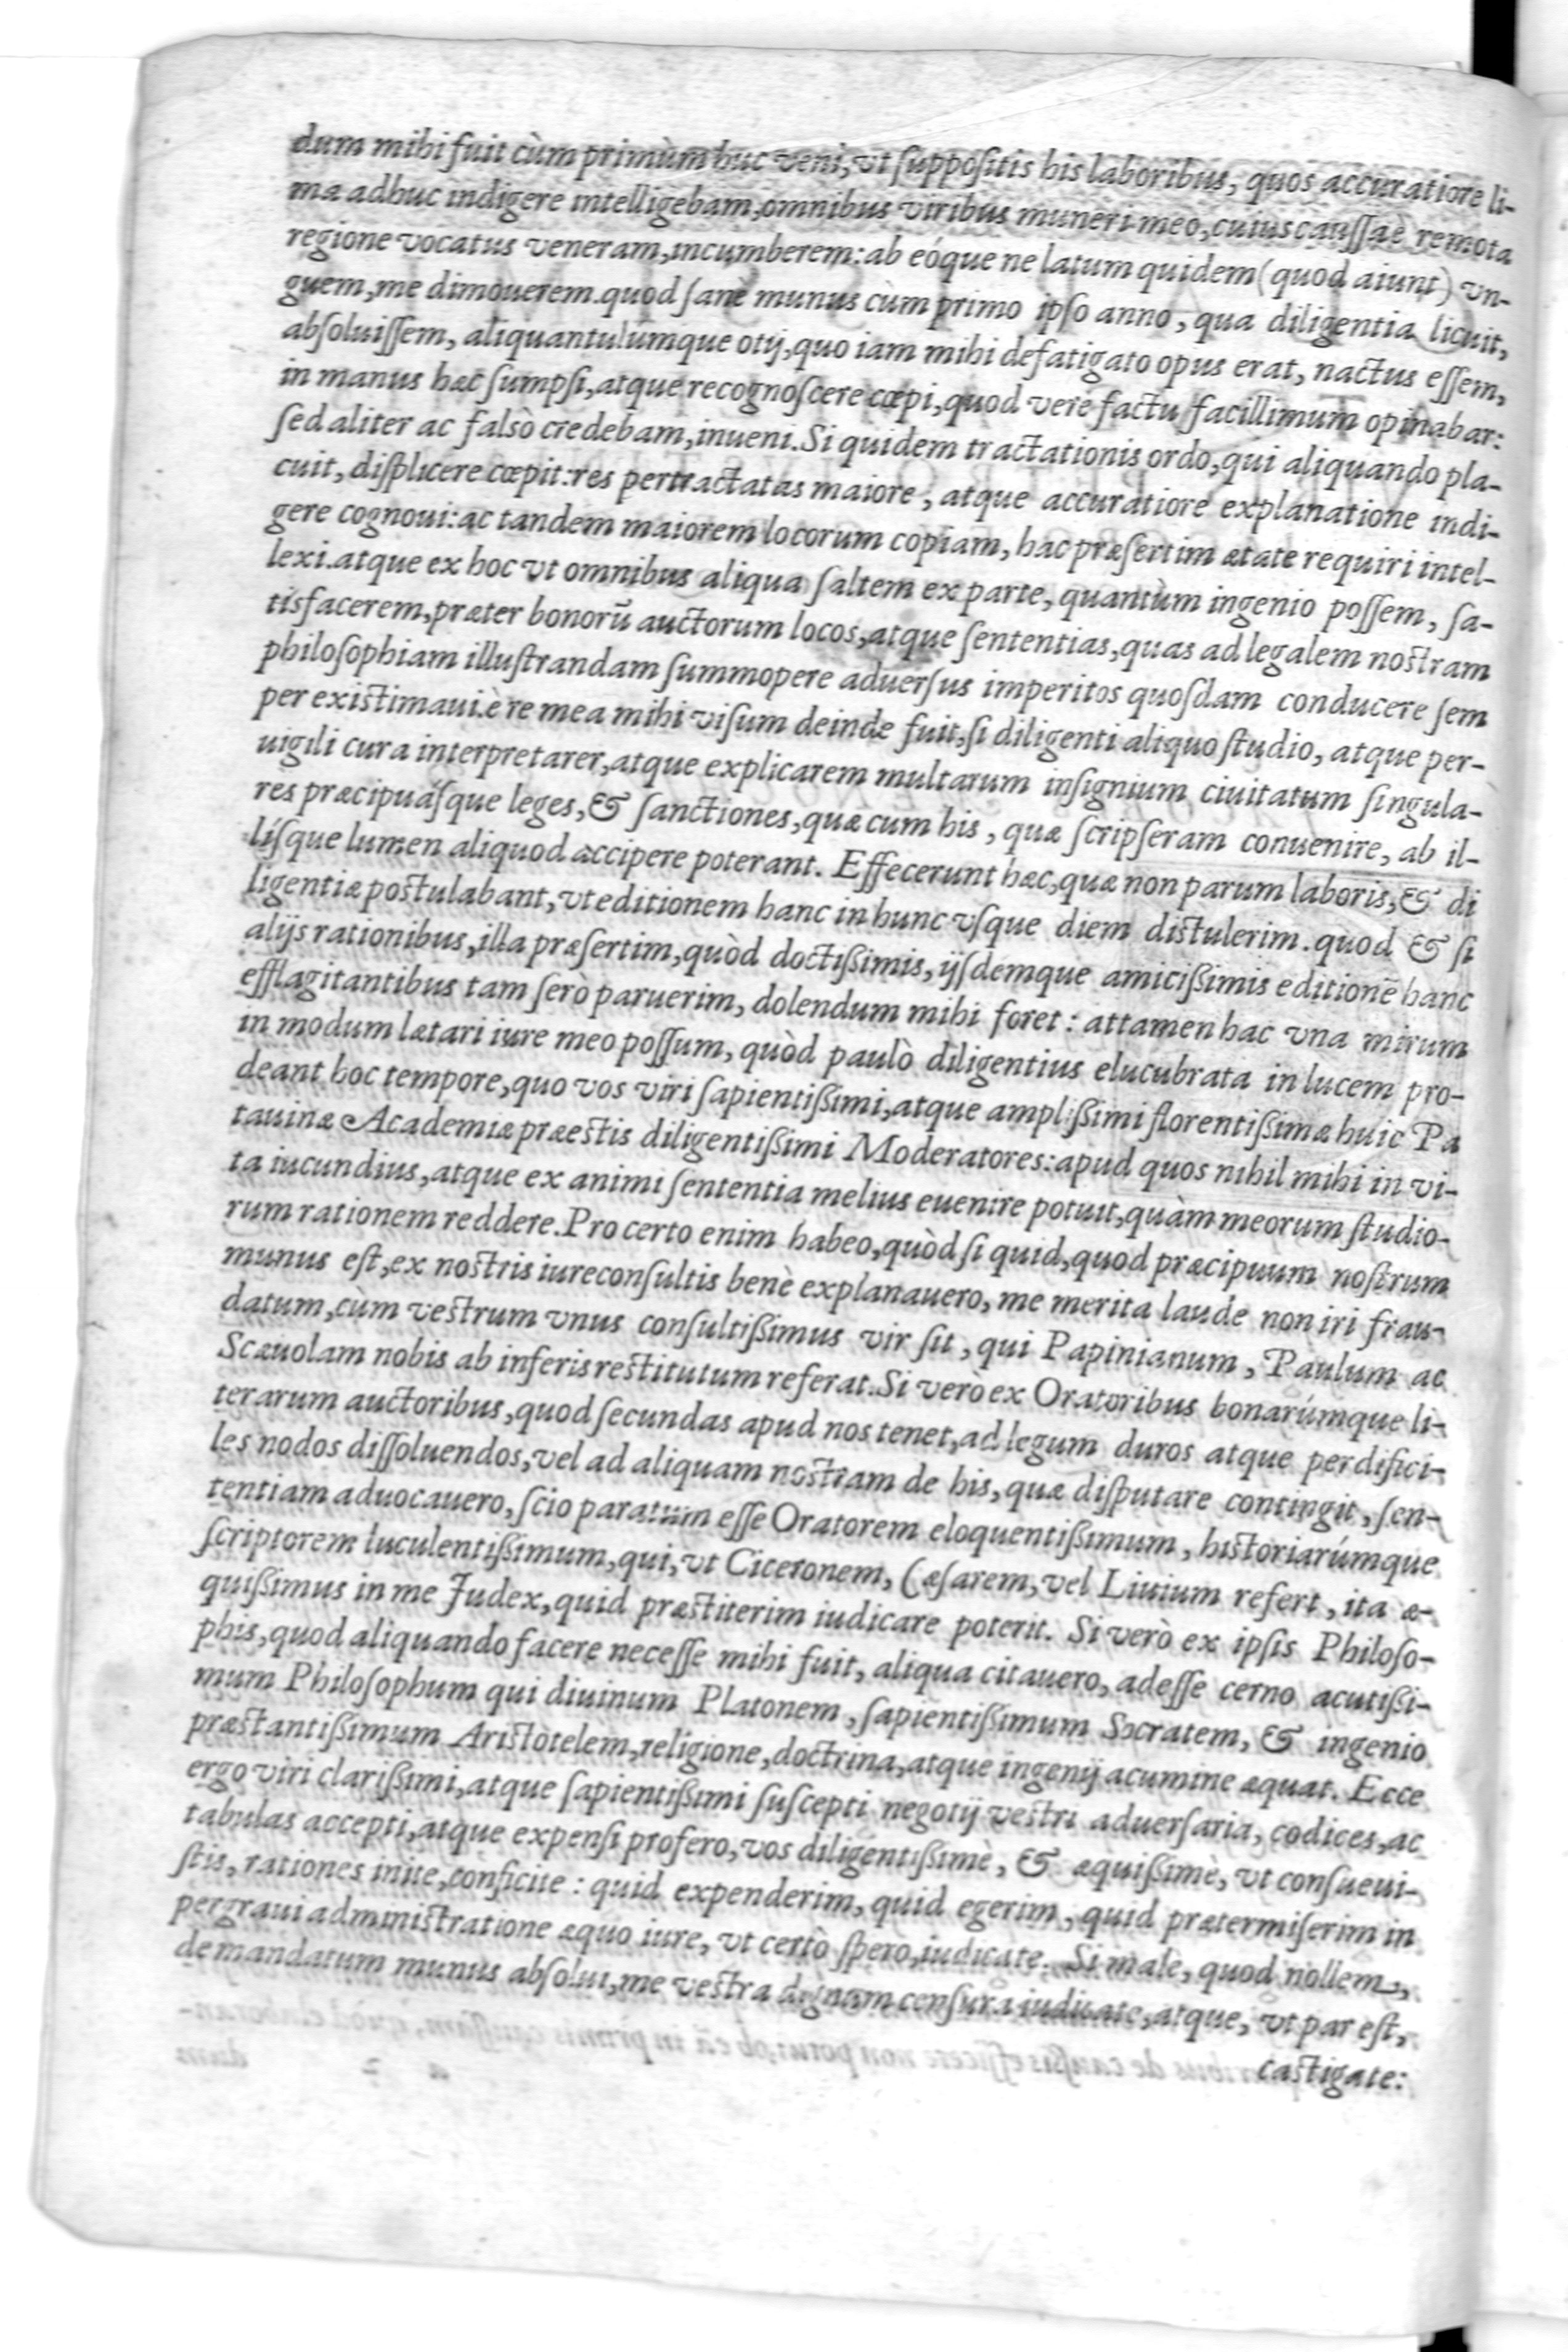 dum mihi fuit cùm primùm huc veni, vt suppositis his laboribus, quos accuratiore li-
ma adhuc indigere intelligebam, omnibus viribus muneri meo, cuius caussa è remota
regione vocatus veneram, incumberem: ab eóque ne latum quidem (quod aiunt) vn-
guem, me dimouerem. quod sanè munus cùm primo ipso anno, qua diligentia licuit,
absoluissem, aliquantulumque otij, quo iam mihi defatigato opus erat, nactus essem,
in manus hæc sumpsi, atque recognoscere cœpi, quod verè factu facillimum opinabar:
sed aliter ac falsò credebam, inueni. Si quidem tractationis ordo, qui aliquando pla-
cuit, displicere cœpit: res pertractatas maiore, atque accuratiore explanatione indi-
gere cognoui: ac tandem maiorem locorum copiam, hac præsertim ætate requiri intel-
lexi. atque ex hoc vt omnibus aliqua saltem ex parte, quantùm ingenio possem, sa-
tisfacerem, præter bonorũ auctorum locos, atque sententias, quas ad legalem nostram
philosophiam illustrandam summopere aduersus imperitos quosdam conducere sem
per existimaui. è re mea mihi visum deinde fuit, si diligenti aliquo studio, atque per-
uigili cura interpretarer, atque explicarem multarum insignium ciuitatum singula-
res præcipuásque leges, & sanctiones, quæ cum his, quæ scripseram conuenire, ab il-
lísque lumen aliquod accipere poterant. Effecerunt hæc, quæ non parum laboris, & di
ligentiæ postulabant, vt editionem hanc in hunc vsque diem distulerim. quod & si
alijs rationibus, illa præsertim, quòd doctißimis, ijsdemque amicißimis editionẽ hanc
efflagitantibus tam serò paruerim, dolendum mihi foret: attamen hac vna mirum
in modum lætari iure meo possum, quòd paulò diligentius elucubrata in lucem pro-
deant hoc tempore, quo vos viri sapientißimi, atque amplißimi florentißimæ huic Pa
tauinæ Academiæ præestis diligentißimi Moderatores: apud quos nihil mihi in vi-
ta iucundius, atque ex animi sententia melius euenire potuit, quàm meorum studio-
rum rationem reddere. Pro certo enim habeo, quòd si quid, quod præcipuum nostrum
munus est, ex nostris iureconsultis benè explanauero, me merita laude non iri frau-
datum, cùm vestrum vnus consultißimus vir sit, qui Papinianum, Paulum ac
Scæuolam nobis ab inferis restitutum referat. Si verò ex Oratoribus bonarúmque li-
terarum auctoribus, quod secundas apud nos tenet, ad legum duros atque perdifici-
les nodos dissoluendos, vel ad aliquam nostram de his, quæ disputare contingit, sen-
tentiam aduocauero, scio paratum esse Oratorem eloquentißimum, historiarúmque
scriptorem luculentißimum, qui, vt Ciceronem, Cæsarem, vel Liuium refert, ita æ-
quißimus in me Judex, quid præstiterim iudicare poterit. Si verò ex ipsis Philoso-
phis, quod aliquando facere necesse mihi fuit, aliqua citauero, adesse cerno acutißi-
mum Philosophum qui diuinum Platonem, sapientißimum Socratem, & ingenio
præstantißimum Aristotelem, religione, doctrina, atque ingenij acumine æquat. Ecce
ergo viri clarißimi, atque sapientißimi suscepti negotij vestri aduersaria, codices, ac
tabulas accepti, atque expensi profero, vos diligentißimè, & æquißimè, vt consueui-
stis, rationes inite, conficite: quid expenderim, quid egerim, quid prætermiserim in
pergraui administratione æquo iure, vt certò spero, iudicate. Si male, quod nollem,
demandatum munus absolui, me vestra dignum censura iudicate, atque, vt par est,
castigate: